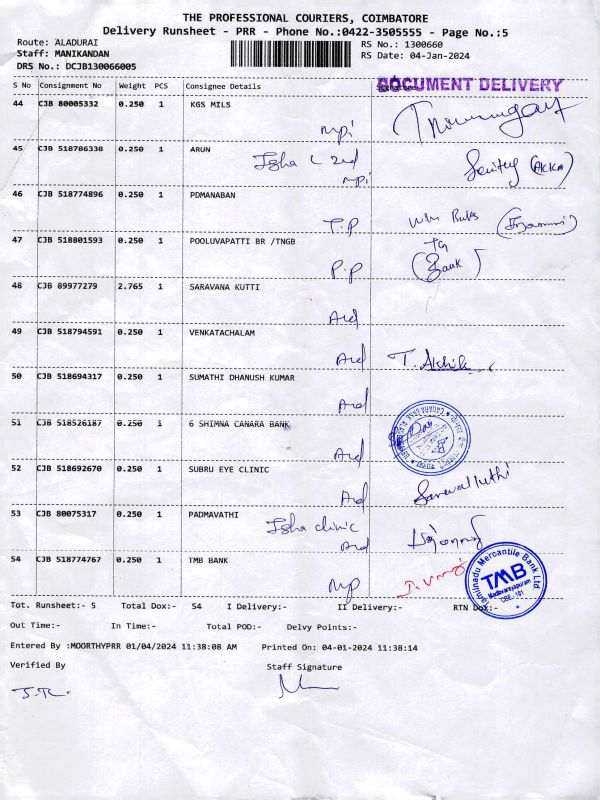 THE PROFESSIONAL COURIERS, COIMBATORE
Delivery Runsheet - PRR - Phone No.:0422-3505555 - Page No.:5
Route: ALADURAI
RS No.: 1300660
Staff: MANIKANDAN
RS Date: 04-Jan-2024
DRS No.: DCJB130066005
DOCUMENT DELIVERY
S No Consignment No Weight PCS Consignee Details
44 CJB 80005332 0.250 1 KGS MILS
mpi
45 CJB 518786338 0.250 1 ARUN
mpi
(AKKA)
46 CJB 518774896 0.250 1 PDMANABAN
T.P
47 CJB 518801593 0.250 1 POOLUVAPATTI BR /TNGB
P.P
(Bank)
48 CJB 89977279 2.765 1 SARAVANA KUTTI
Ard
49 CJB 518794591 0.250 1 VENKATACHALAM
Ard
T. Akhila
50 CJB 518694317 0.250 1 SUMATHI DHANUSH KUMAR
Ard
51 CJB 518526187 0.250 1 6 SHIMNA CANARA BANK
Ard
52 CJB 518692670 0.250 1 SUBRU EYE CLINIC
Ard
53 CJB 80075317 0.250 1 PADMAVATHI
Isha clinic
Ard
54 CJB 518774767 0.250 1 TMB BANK
MP
Tamilnadu Mercantile Bank Ltd.
TMB
Madhvarayapuram
CBE. 101
Tot. Runsheet:- 5 Total Dox:- 54 I Delivery:- II Delivery:- RTN Dox:-
Out Time:- In Time:- Total POD:- Delvy Points:-
Entered By :MOORTHYPRR 01/04/2024 11:38:08 AM Printed On: 04-01-2024 11:38:14
Verified By Staff Signature